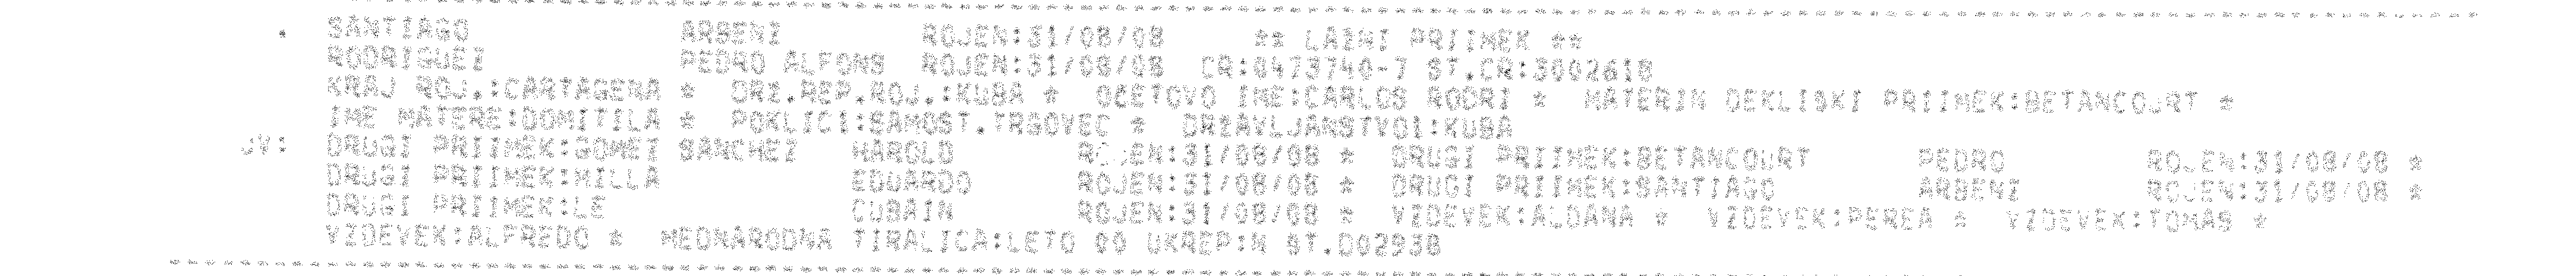 SANTIAGO ARBENI ROJEN:31/08/08 ** LAZNI PRIIMEK **
RODRIGUEZ PEDRO ALFONS ROJEN:31/08/08 CR:0473740-7 ST.CR:3002618
KRAJ ROJ.:CARTAGENA * DRZ.REP.ROJ.:KUBA * OCETOVO IME:CARLOS RODRI * MATERIN DEKLISKI PRIIMEK:BETANCOURT *
IME MATERE:DOMITILA * POKLIC1:SAMOST.TRGOVEC * DRZAVLJANSTVO1:KUBA
JV: DRUGI PRIIMEK:GOMEZ SANCHEZ HAROLD ROJEN:31/08/08 * DRUGI PRIIMEK:BETANCOURT PEDRO ROJEN:31/08/08 *
DRUGI PRIIMEK:MILLA EDUARDO ROJEN:31/08/08 * DRUGI PRIIMEK:SANTIAGO ARBENI ROJEN:31/08/08 *
DRUGI PRIIMEK:LE CUBAIN ROJEN:31/08/08 * VZDEVEK:ALDANA * VZDEVEK:PEREA * VZDEVEK:TOMAS *
VZDEVEK:ALFREDO * MEDNARODNA TIRALICA:LETO 90 UKREP:N ST.D02938